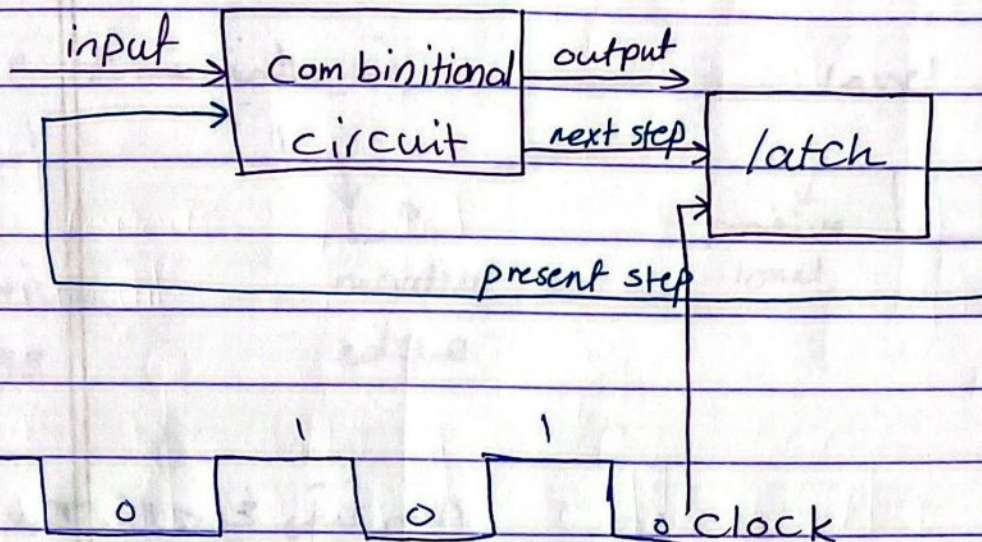 input
Combinitional
circuit
output
next step
latch
present step
1 1
0 0 0 clock